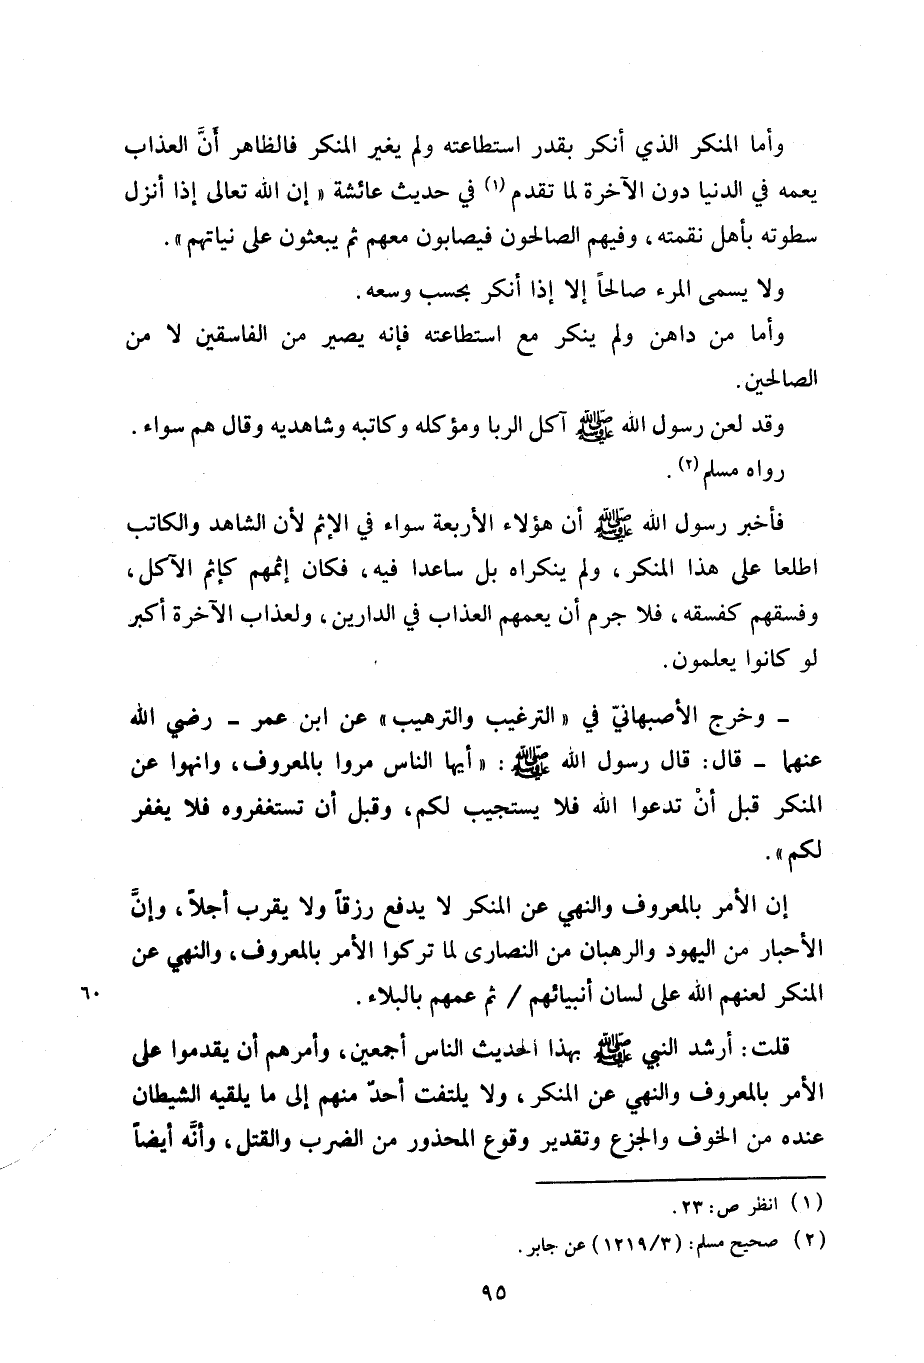 وأما المنكر الذي أنكر بقدر استطاعته ولم يغير المنكر فالظاهر أَنَّ العذاب
يعمه في الدنيا دون الآخرة لما تقدم (١) في حديث عائشة « إن الله تعالى إذا أنزل
سطوته بأهل نقمته ، وفيهم الصالحون فيصابون معهم ثم يبعثون على نياتهم » .
ولا يسمى المرء صالحاً إلا إذا أنكر بحسب وسعه .
وأما من داهن ولم ينكر مع استطاعته فإنه يصير من الفاسقين لا من
الصالحين .
وقد لعن رسول الله ﷺ آكل الربا ومؤكله وكاتبه وشاهديه وقال هم سواء .
رواه مسلم (٢) .
فأخبر رسول الله ﷺ أن هؤلاء الأربعة سواء في الإثم لأن الشاهد والكاتب
اطلعا على هذا المنكر ، ولم ينكراه بل ساعدا فيه ، فكان إثمهم كإثم الآكل ،
وفسقهم كفسقه ، فلا جرم أن يعمهم العذاب في الدارين ، ولعذاب الآخرة أكبر
لو كانوا يعلمون .
ـ وخرج الأصبهانيّ في « الترغيب والترهيب » عن ابن عمر ـ رضي الله
عنهما ـ قال : قال رسول الله ﷺ : « أيها الناس مروا بالمعروف ، وانهوا عن
المنكر قبل أنْ تدعوا الله فلا يستجيب لكم ، وقبل أن تستغفروه فلا يغفر
لكم » .
إن الأمر بالمعروف والنهي عن المنكر لا يدفع رزقاً ولا يقرب أجلاً ، وإنَّ
الأحبار من اليهود والرهبان من النصارى لما تركوا الأمر بالمعروف ، والنهي عن
المنكر لعنهم الله على لسان أنبيائهم / ثم عمهم بالبلاء . ٦٠
قلت : أرشد النبي ﷺ بهذا الحديث الناس أجمعين ، وأمرهم أن يقدموا على
الأمر بالمعروف والنهي عن المنكر ، ولا يلتفت أحدّ منهم إلى ما يلقيه الشيطان
عنده من الخوف والجزع وتقدير وقوع المحذور من الضرب والقتل ، وأنَّه أيضاً
(١) انظر ص : ٢٣ .
(٢) صحيح مسلم : (١٢١٩/٣) عن جابر .
٩٥